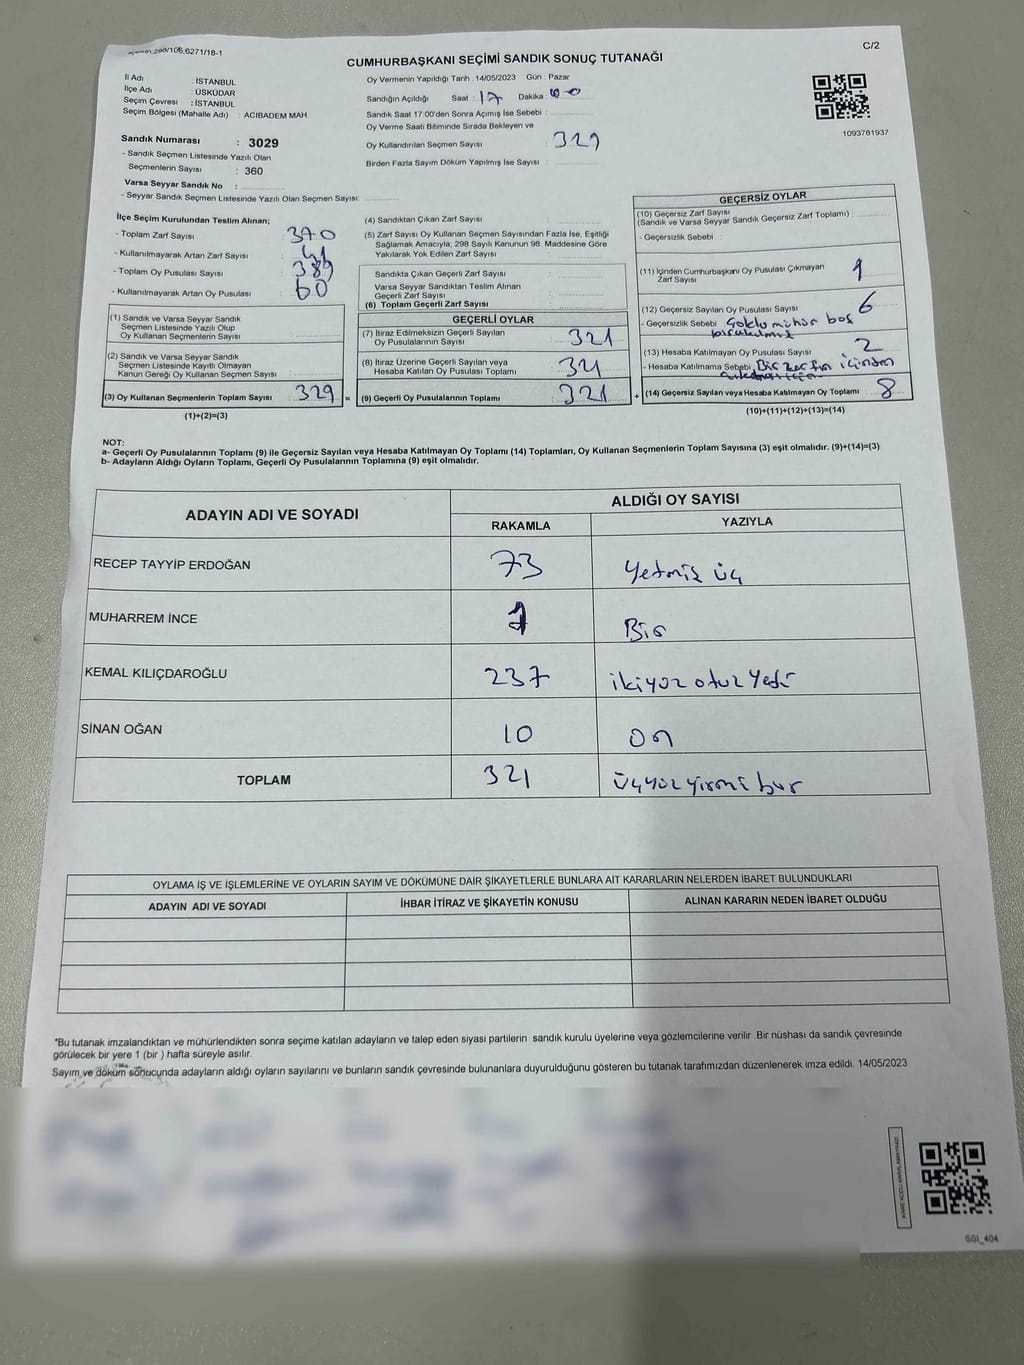 C/2
CUMHURBAŞKANI SEÇİMİ SANDIK SONUÇ TUTANAĞI
İl Adı : İSTANBUL
İlçe Adı : ÜSKÜDAR
Seçim Çevresi : İSTANBUL
Seçim Bölgesi (Mahalle Adı) : ACIBADEM MAH
Sandık Numarası : 3029
- Sandık Seçmen Listesinde Yazılı Olan
Seçmenlerin Sayısı : 360
Varsa Seyyar Sandık No :
- Seyyar Sandık Seçmen Listesinde Yazılı Olan Seçmen Sayısı:
Oy Vermenin Yapıldığı Tarih : 14/05/2023 Gün : Pazar
Sandığın Açıldığı Saat : 17 Dakika :
Sandık Saat 17:00'den Sonra Açımış İse Sebebi :
Oy Verme Saati Bitiminde Sırada Bekleyen ve
Oy Kullandırılan Seçmen Sayısı : 329
Birden Fazla Sayım Döküm Yapılmış İse Sayısı :
1093781937
İlçe Seçim Kurulundan Teslim Alınan;
- Toplam Zarf Sayısı : 370
- Kullanılmayarak Artan Zarf Sayısı : 41
- Toplam Oy Pusulası Sayısı : 389
- Kullanılmayarak Artan Oy Pusulası : 60
(1) Sandık ve Varsa Seyyar Sandık
Seçmen Listesinde Yazılı Olup
Oy Kullanan Seçmenlerin Sayısı
(2) Sandık ve Varsa Seyyar Sandık
Seçmen Listesinde Kayıtlı Olmayan
Kanun Gereği Oy Kullanan Seçmen Sayısı :
(3) Oy Kullanan Seçmenlerin Toplam Sayısı : 329 =
(1)+(2)=(3)
(4) Sandıktan Çıkan Zarf Sayısı :
(5) Zarf Sayısı Oy Kullanan Seçmen Sayısından Fazla İse, Eşitliği
Sağlamak Amacıyla, 298 Sayılı Kanunun 98. Maddesine Göre
Yakılarak Yok Edilen Zarf Sayısı :
Sandıkta Çıkan Geçerli Zarf Sayısı :
Varsa Seyyar Sandıktan Teslim Alınan
Geçerli Zarf Sayısı :
(6) Toplam Geçerli Zarf Sayısı :
GEÇERLİ OYLAR
(7) İtiraz Edilmeksizin Geçerli Sayılan
Oy Pusulalarının Sayısı : 321
(8) İtiraz Üzerine Geçerli Sayılan veya
Hesaba Katılan Oy Pusulası Toplamı : 321
(9) Geçerli Oy Pusulalarının Toplamı : 321 +
GEÇERSİZ OYLAR
(10) Geçersiz Zarf Sayısı
(Sandık ve Varsa Seyyar Sandık Geçersiz Zarf Toplamı) :
- Geçersizlik Sebebi :
(11) İçinden Cumhurbaşkanı Oy Pusulası Çıkmayan
Zarf Sayısı :
(12) Geçersiz Sayılan Oy Pusulası Sayısı : 6
- Geçersizlik Sebebi : Çoklu mühür boş
bırakılmış
(13) Hesaba Katılmayan Oy Pusulası Sayısı : 2
- Hesaba Katılmama Sebebi : Bir zarfın içinden
(14) Geçersiz Sayılan veya Hesaba Katılmayan Oy Toplamı : 8
(10)+(11)+(12)+(13)=(14)
NOT:
a- Geçerli Oy Pusulalarının Toplamı (9) ile Geçersiz Sayılan veya Hesaba Katılmayan Oy Toplamı (14) Toplamları, Oy Kullanan Seçmenlerin Toplam Sayısına (3) eşit olmalıdır. (9)+(14)=(3)
b- Adayların Aldığı Oyların Toplamı, Geçerli Oy Pusulalarının Toplamına (9) eşit olmalıdır.
ADAYIN ADI VE SOYADI
ALDIĞI OY SAYISI
RAKAMLA YAZIYLA
RECEP TAYYİP ERDOĞAN 73 Yetmiş üç
MUHARREM İNCE 1 Bir
KEMAL KILIÇDAROĞLU 237 ikiyüz otuz yedi
SİNAN OĞAN 10 On
TOPLAM 321 üçyüz yirmi bir
OYLAMA İŞ VE İŞLEMLERİNE VE OYLARIN SAYIM VE DÖKÜMÜNE DAİR ŞİKAYETLERLE BUNLARA AİT KARARLARIN NELERDEN İBARET BULUNDUKLARI
ADAYIN ADI VE SOYADI İHBAR İTİRAZ VE ŞİKAYETİN KONUSU ALINAN KARARIN NEDEN İBARET OLDUĞU
*Bu tutanak imzalandıktan ve mühürlendikten sonra seçime katılan adayların ve talep eden siyasi partilerin sandık kurulu üyelerine veya gözlemcilerine verilir. Bir nüshası da sandık çevresinde
görülecek bir yere 1 (bir ) hafta süreyle asılır.
Sayım ve döküm sonucunda adayların aldığı oyların sayılarını ve bunların sandık çevresinde bulunanlara duyurulduğunu gösteren bu tutanak tarafımızdan düzenlenerek imza edildi. 14/05/2023
SSI_404